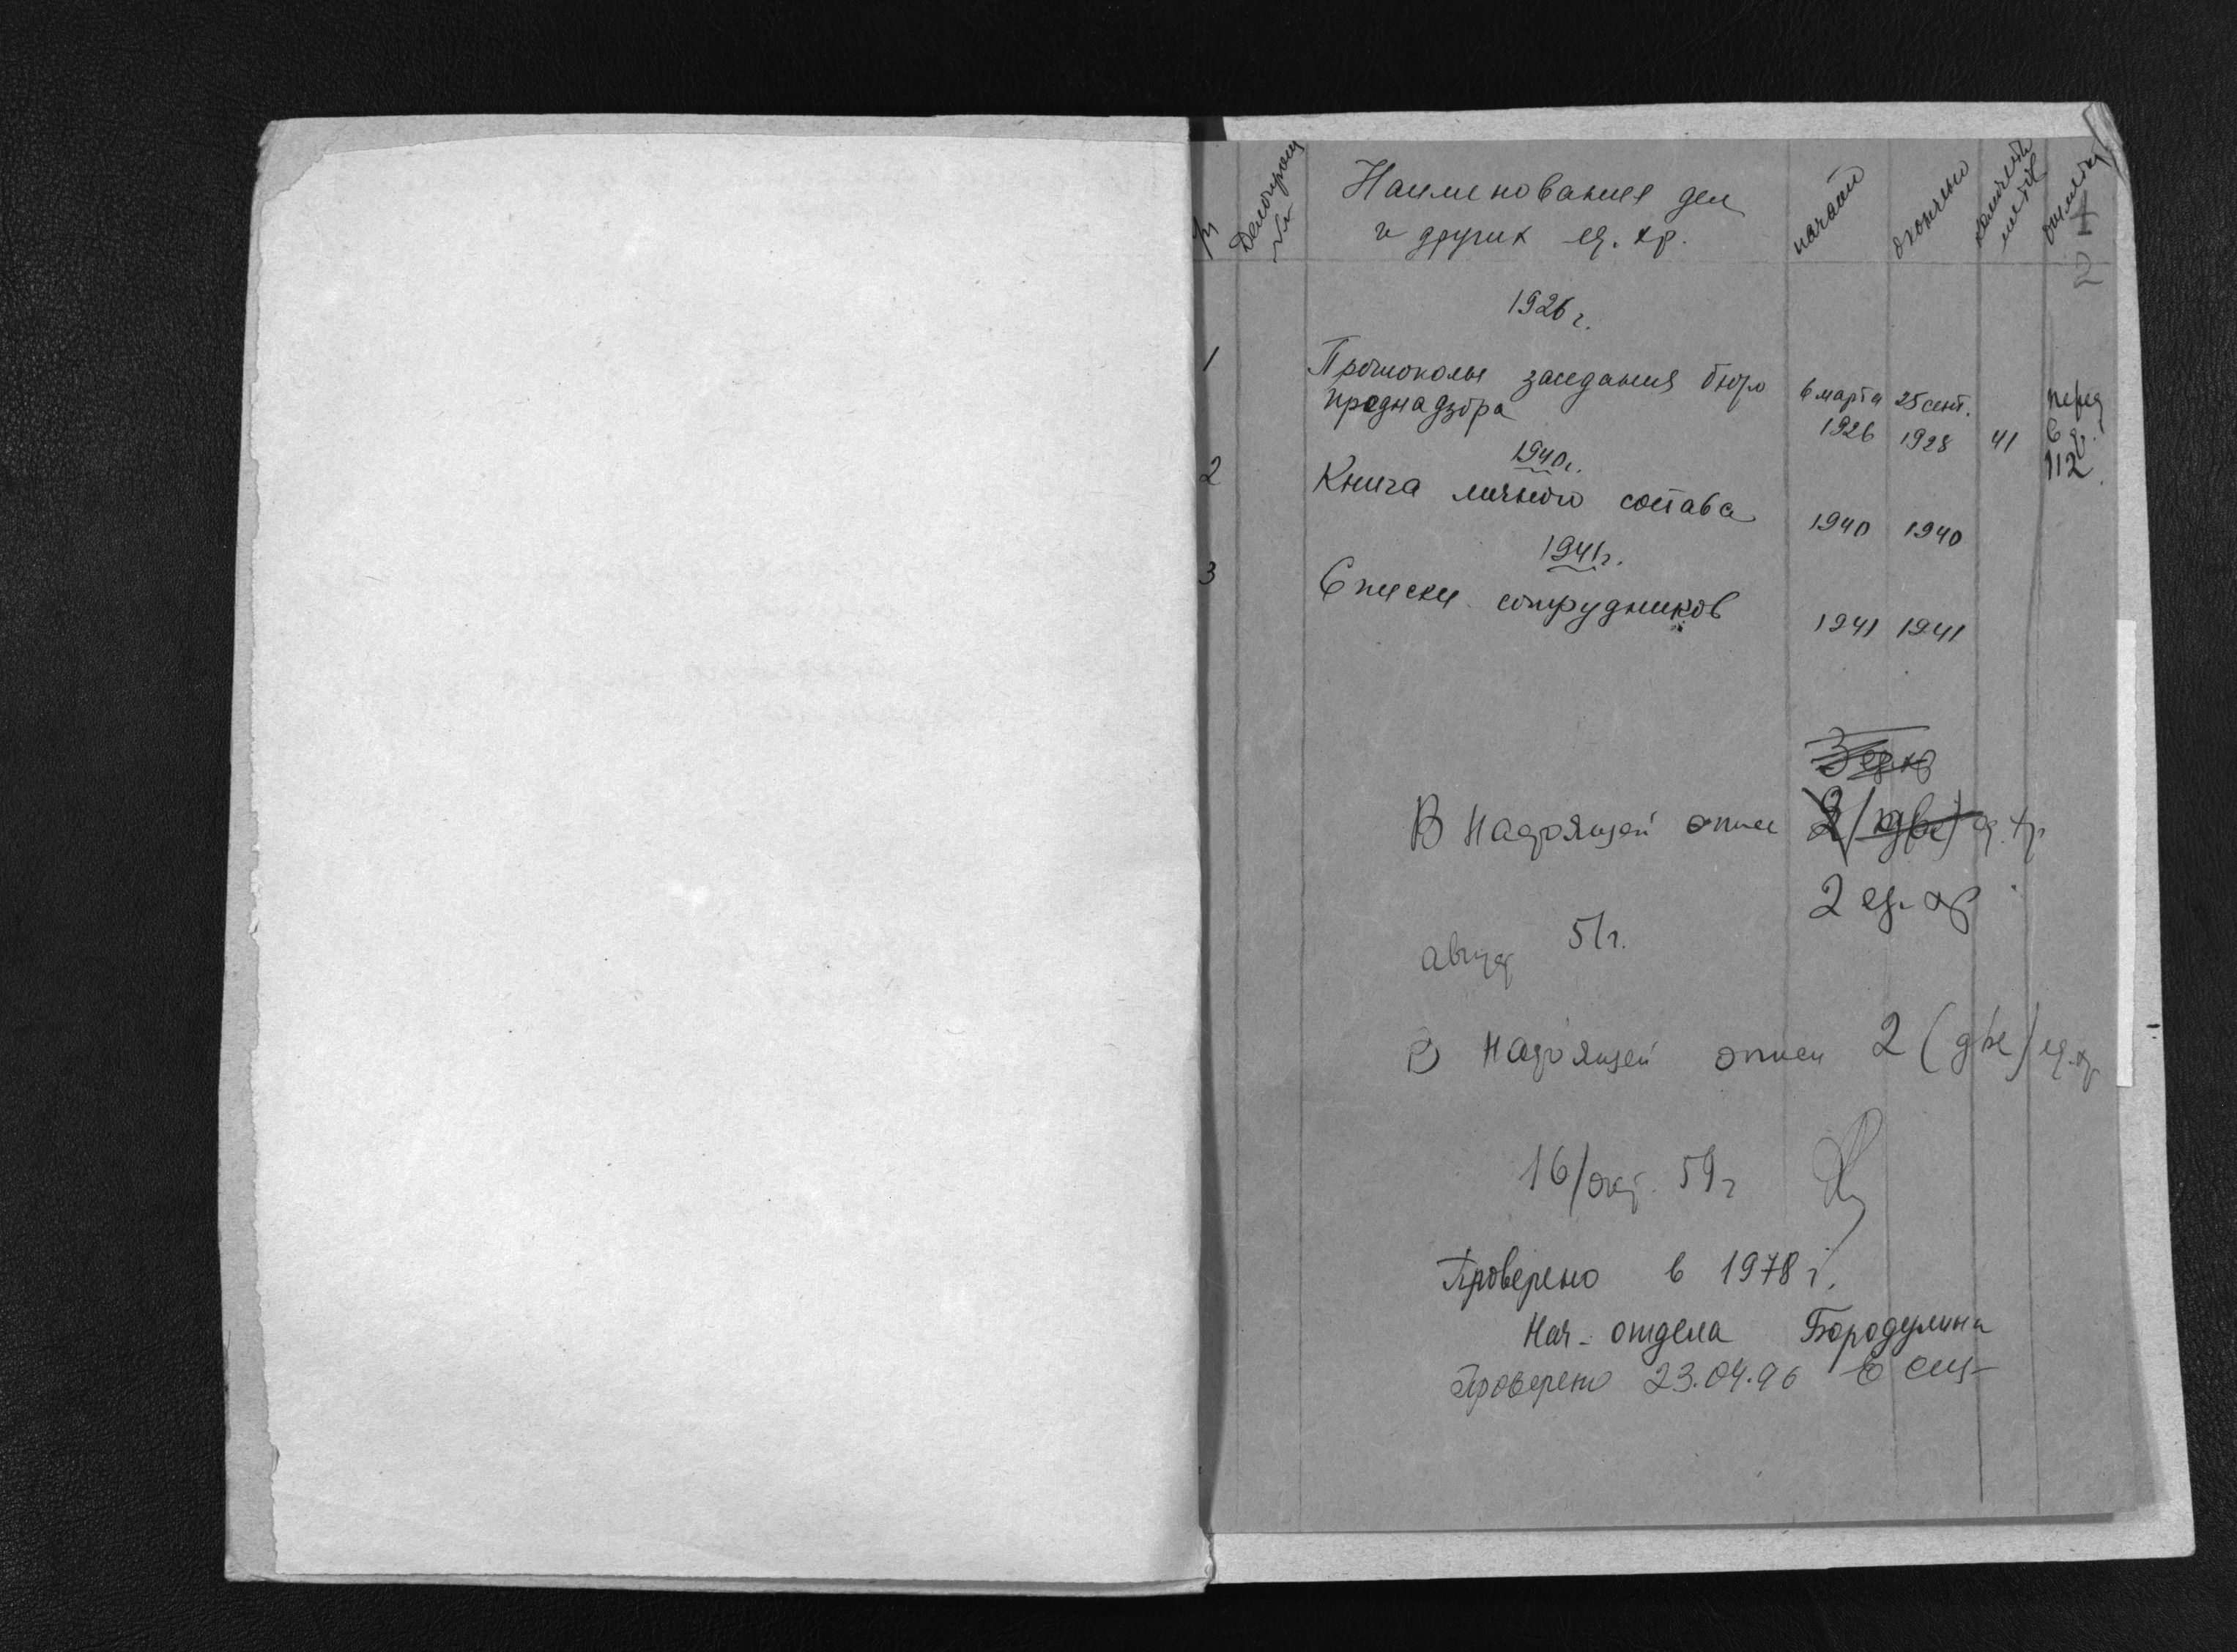 Наименование дел
и других ед. хр.
начато
окончено
количеств
листов
отметки
1
2
1926 г.
1 Протоколы заседания бюро 6 марта 25 сент. перед
преднадзора 1926 1928 41 в ф.
112
1940г.
2 Книга личного состава 1940 1940
1941г.
3 Списки сотрудников 1941 1941
3 ед. хр
В настоящей описи 2 (две) ед. хр
2 ед. хр
август 51г.
В настоящей описи 2 (две) ед. хр
16/окт. 59г
Проверено в 1978 г.
Нач. отдела Бородулина
Проверено 23.04.96